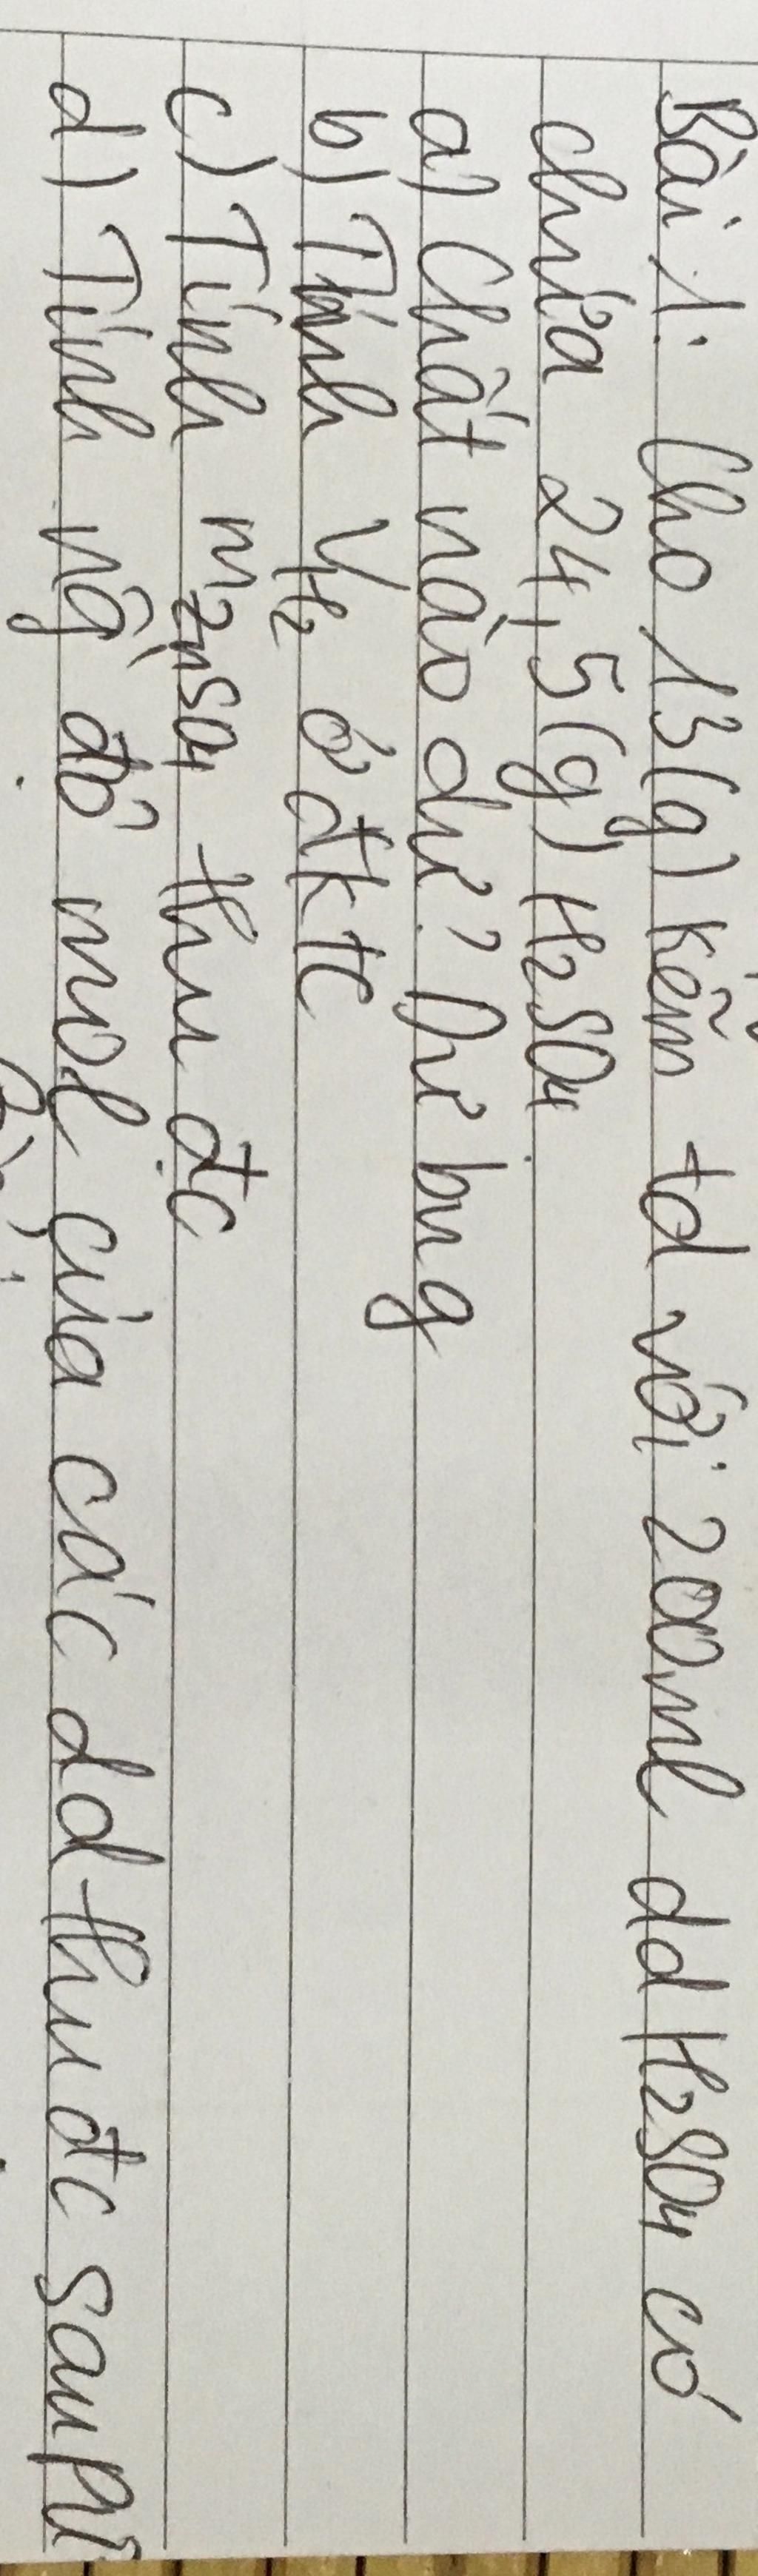 Bài 1: Cho 13(g) kẽm td với 200ml dd H₂SO₄ có
chứa 24,5(g) H₂SO₄.
a) Chất nào dư? Dư bn g
b) Tính VH₂ ở đktc
c) Tính mZnSO₄ thu đc
d) Tính ng độ mol của các dd thu đc sau pứ